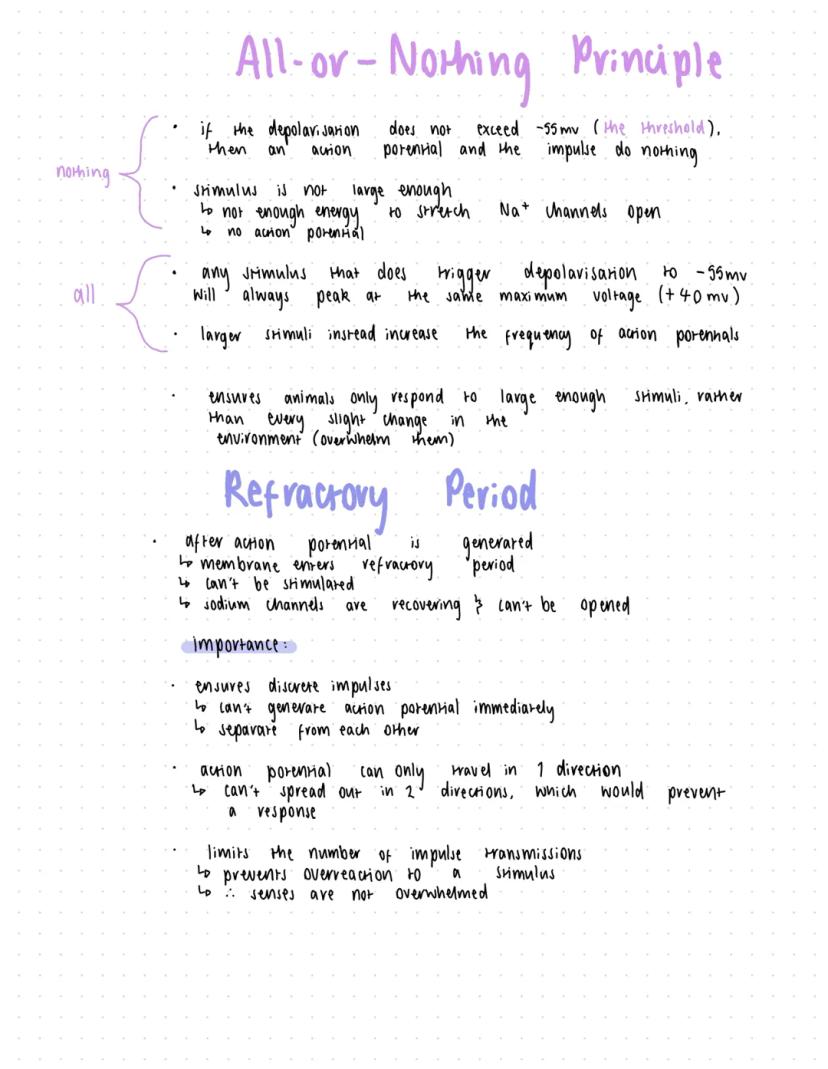 All-or-Nothing Principle
• if the depolarisation does not exceed -55mv (the threshold),
then an action potential and the impulse do nothing
nothing
• stimulus is not large enough
↳ not enough energy to stretch Na⁺ channels open
↳ no action potential
• any stimulus that does trigger depolarisation to -55mv
all
will always peak at the same maximum voltage (+40mv)
• larger stimuli instead increase the frequency of action potentials
• ensures animals only respond to large enough stimuli, rather
than every slight change in the
environment (overwhelm them)
Refractory Period
• after action potential is generated
↳ membrane enters refractory period
↳ can't be stimulated
↳ sodium channels are recovering & can't be opened
importance:
• ensures discrete impulses
↳ can't generate action potential immediately
↳ separate from each other
• action potential can only travel in 1 direction
↳ can't spread out in 2 directions, which would prevent
a response
• limits the number of impulse transmissions
↳ prevents overreaction to a stimulus
↳ ∴ senses are not overwhelmed